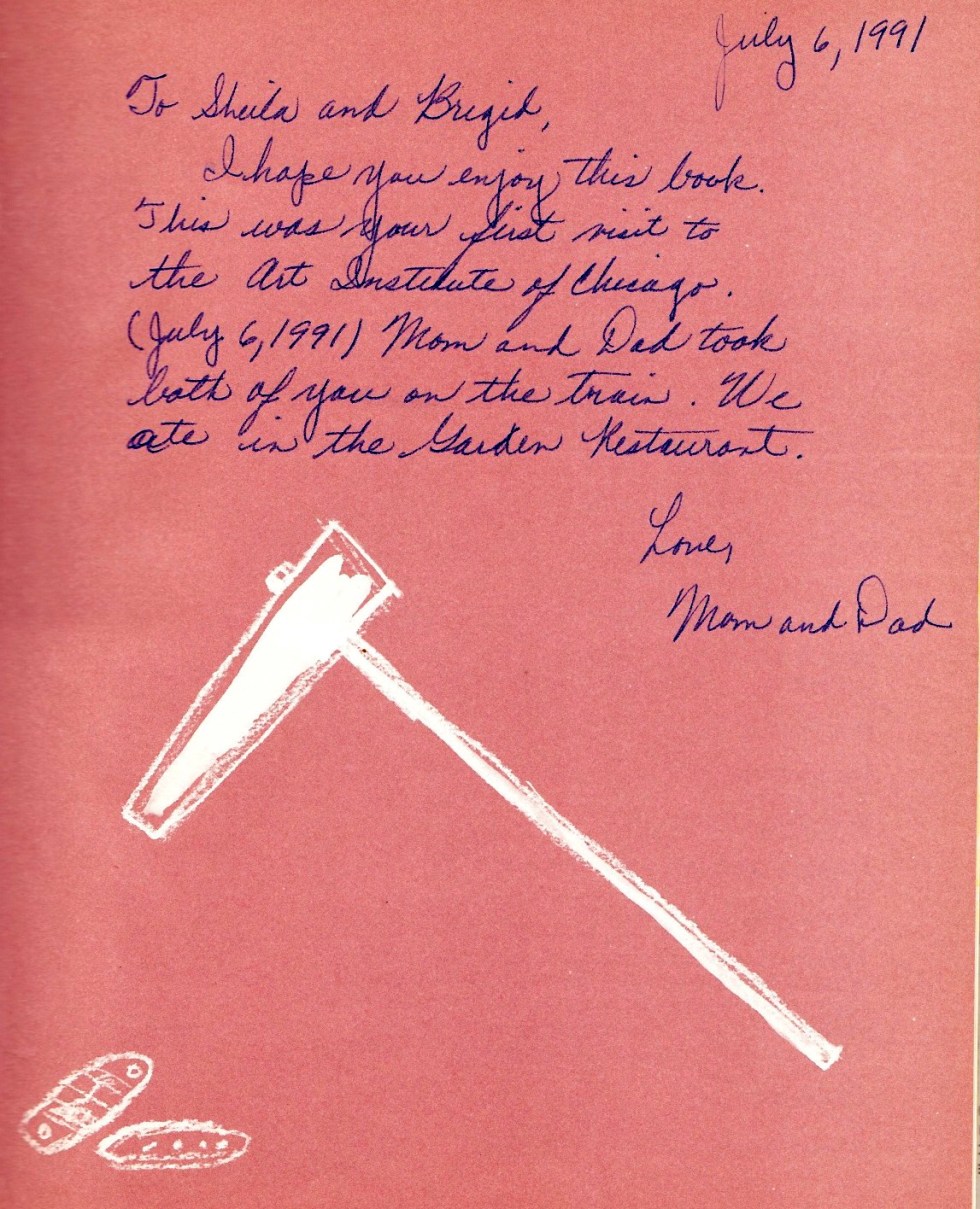 July 6, 1991
To Sheila and Brigid,
I hope you enjoy this book.
This was your first visit to
the Art Institute of Chicago.
(July 6, 1991) Mom and Dad took
both of you on the train. We
ate in the Garden Restaurant.
Love,
Mom and Dad